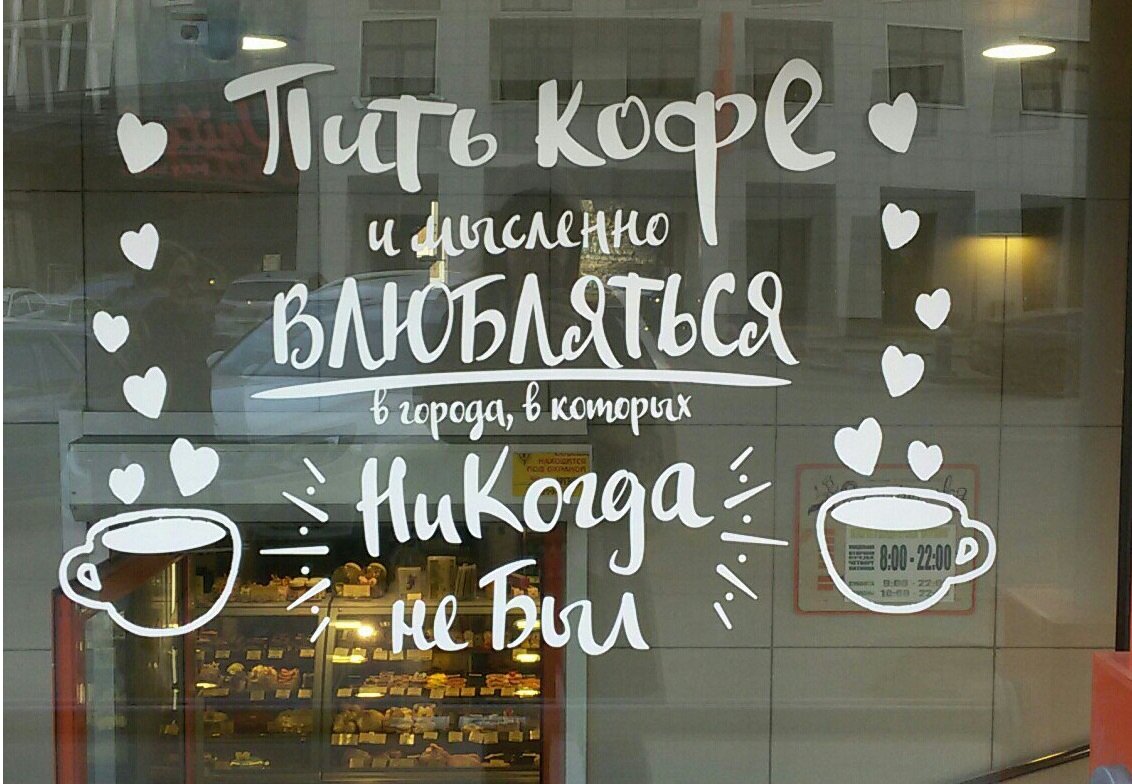 Пить кофе
и мысленно
влюбляться
в города, в которых
Никогда
не был
находится
под охраной
8:00-22:00